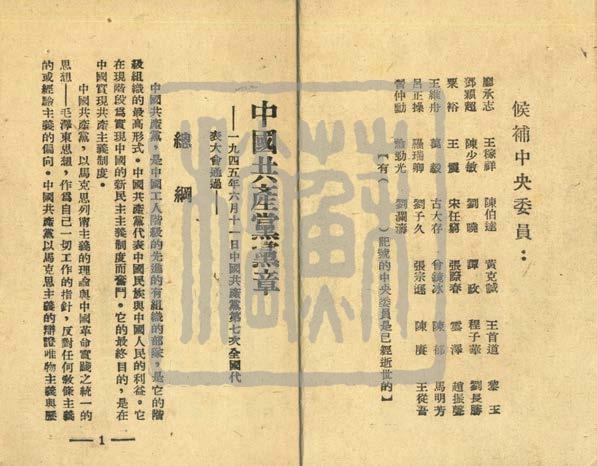 候補中央委員：
廖承志 王稼祥 陳伯達 黃克誠 王首道 黎玉
鄧穎超 陳少敏 劉曉 譚政 程子華 劉長勝
粟裕 王震 宋任窮 張際春 雲澤 趙振聲
王維舟 萬毅 古大存 曾鏡冰 陳郁 馬明芳
呂正操 羅瑞卿 劉子久 張宗遜 陳賡 王從吾
習仲勳 蕭勁光 劉瀾濤
【有（ ）記號的中央委員是已經逝世的】
中國共產黨黨章
——一九四五年六月十一日中國共產黨第七次全國代
表大會通過——
總綱
中國共產黨，是中國工人階級的先進的有組織的部隊，是它的階
級組織的最高形式。中國共產黨代表中國民族與中國人民的利益。它
在現階段爲實現中國的新民主主義制度而奮鬥。它的最終目的，是在
中國實現共產主義制度。
中國共產黨，以馬克思列甯主義的理論與中國革命實踐之統一的
思想——毛澤東思想，作爲自己一切工作的指針，反對任何敎條主義
的或經驗主義的偏向。中國共產黨以馬克思主義的辯證唯物主義與歷
— 1 —